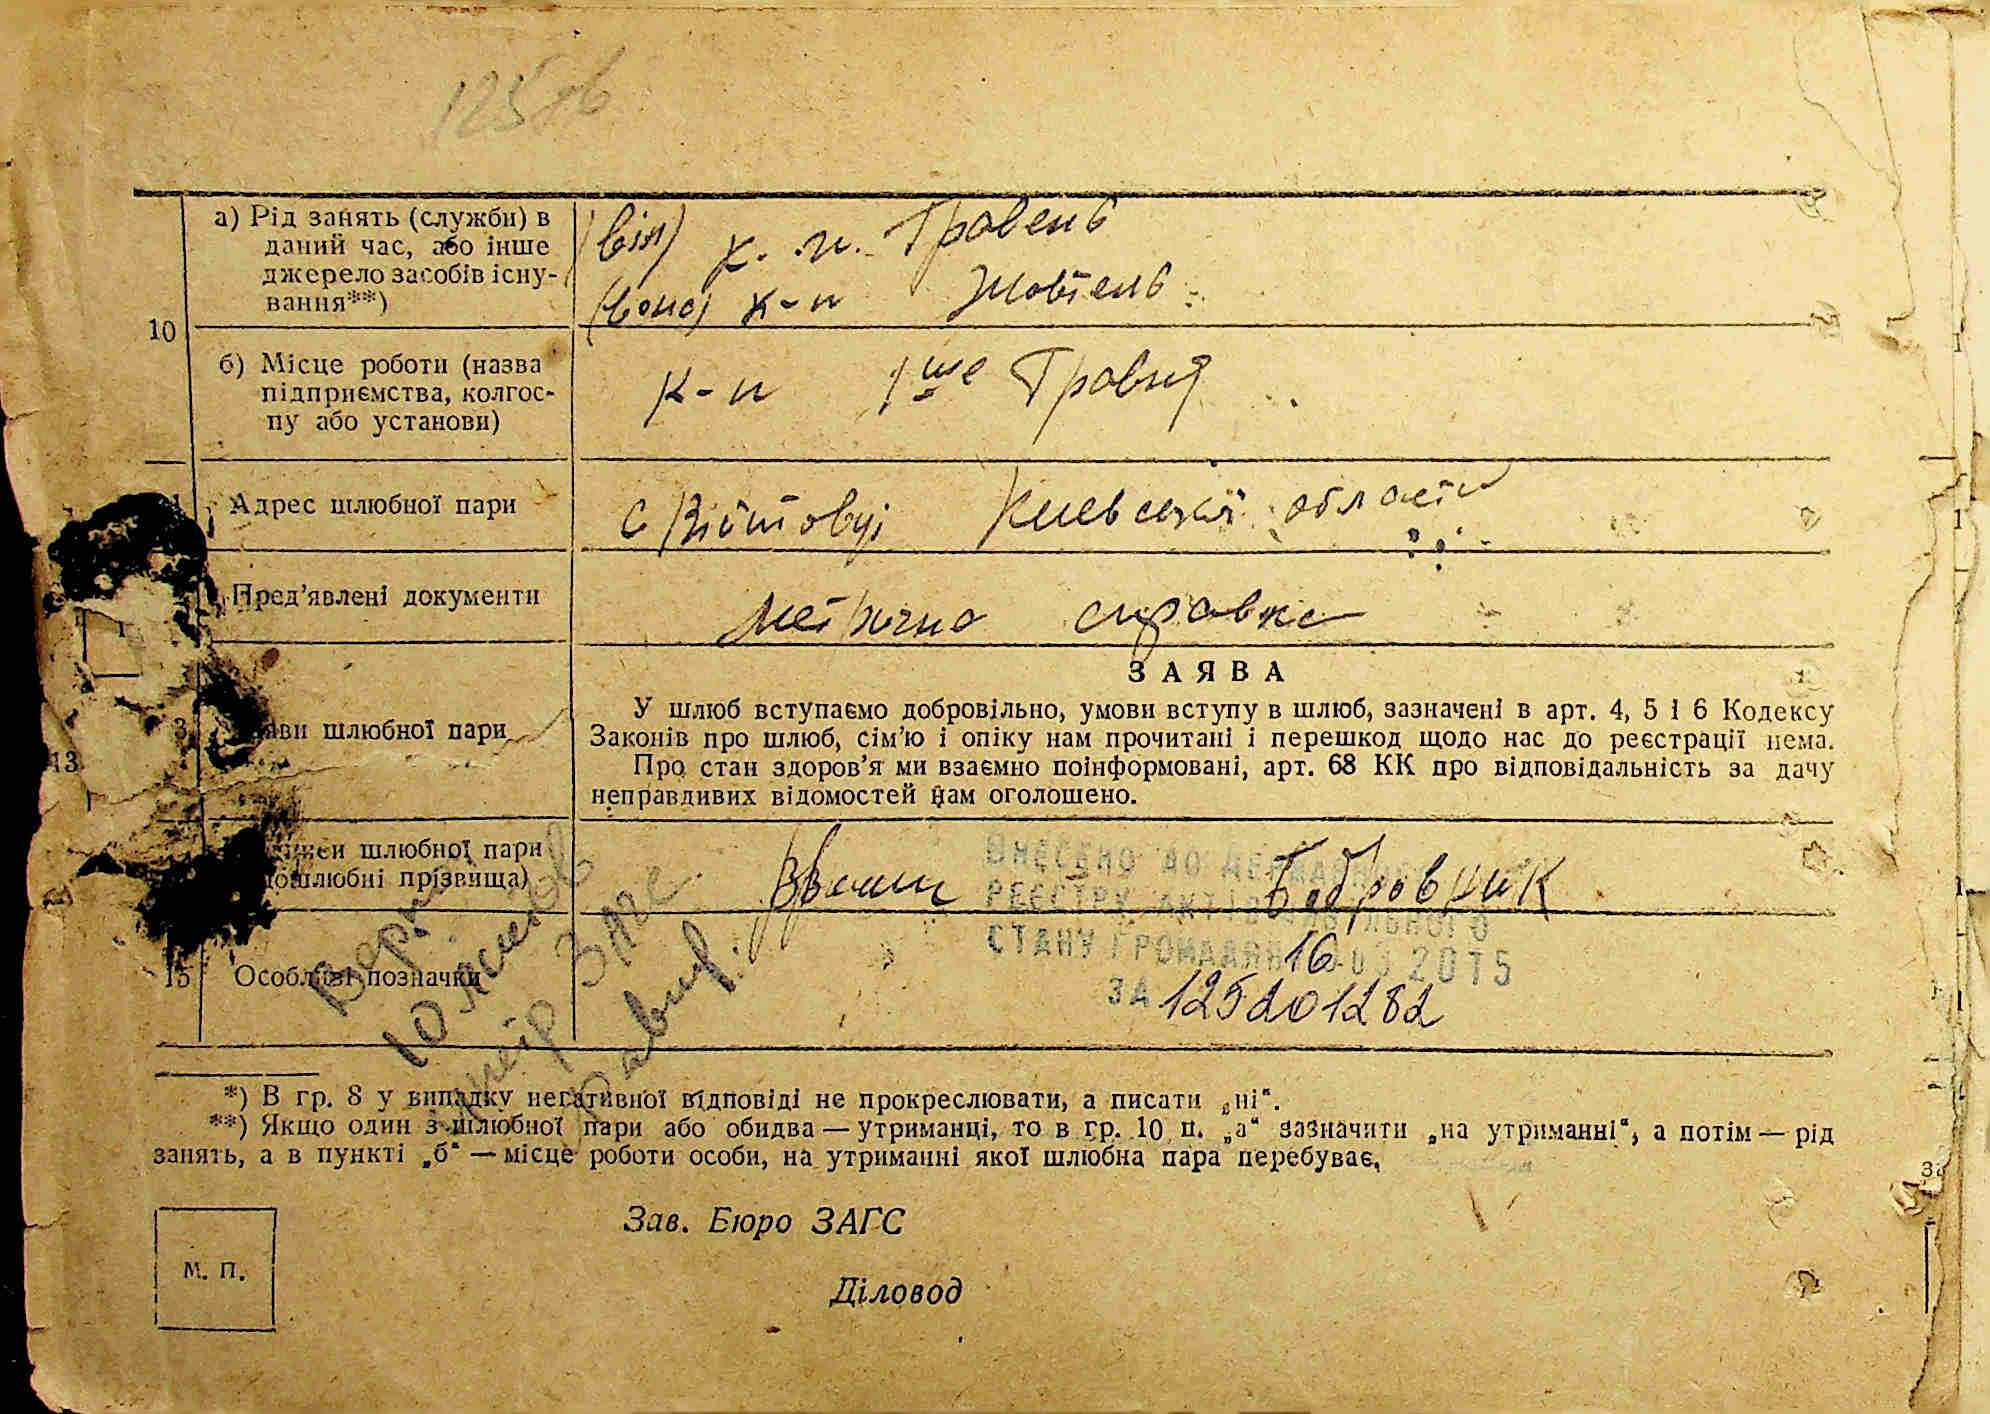 а) Рід занять (служби) в
даний час, або інше
джерело засобів існу-
вання**)
(він) к. п. Травень
(вона) к-п Жовтень
10
б) Місце роботи (назва
підприємства, колгос-
пу або установи)
к-п 1ше Травня
Адрес шлюбної пари
с Війтовці Киевської области
Пред'явлені документи
метрична справка
ЗАЯВА
У шлюб вступаємо добровільно, умови вступу в шлюб, зазначені в арт. 4, 5 і 6 Кодексу
Законів про шлюб, сім'ю і опіку нам прочитані і перешкод щодо нас до реєстрації нема.
Про стан здоров'я ми взаємно поінформовані, арт. 68 КК про відповідальність за дачу
неправдивих відомостей нам оголошено.
шлюбної пари
13
шлюбної пари
дошлюбні прізвища)
Бобровник
ВНЕСЕНО ДО ДЕРЖАВНОГО
РЕЄСТРУ АКТІВ ЦИВІЛЬНОГО
СТАНУ ГРОМАДЯН 16 03 2015
ЗА 125201282
15 Особливі позначки
*) В гр. 8 у випадку негативної відповіді не прокреслювати, а писати „ні“.
**) Якщо один з шлюбної пари або обидва — утриманці, то в гр. 10 п. „а“ зазначити „на утриманні“, а потім — рід
занять, а в пункті „б“ — місце роботи особи, на утриманні якої шлюбна пара перебуває,
Зав. Бюро ЗАГС
М. П.
Діловод